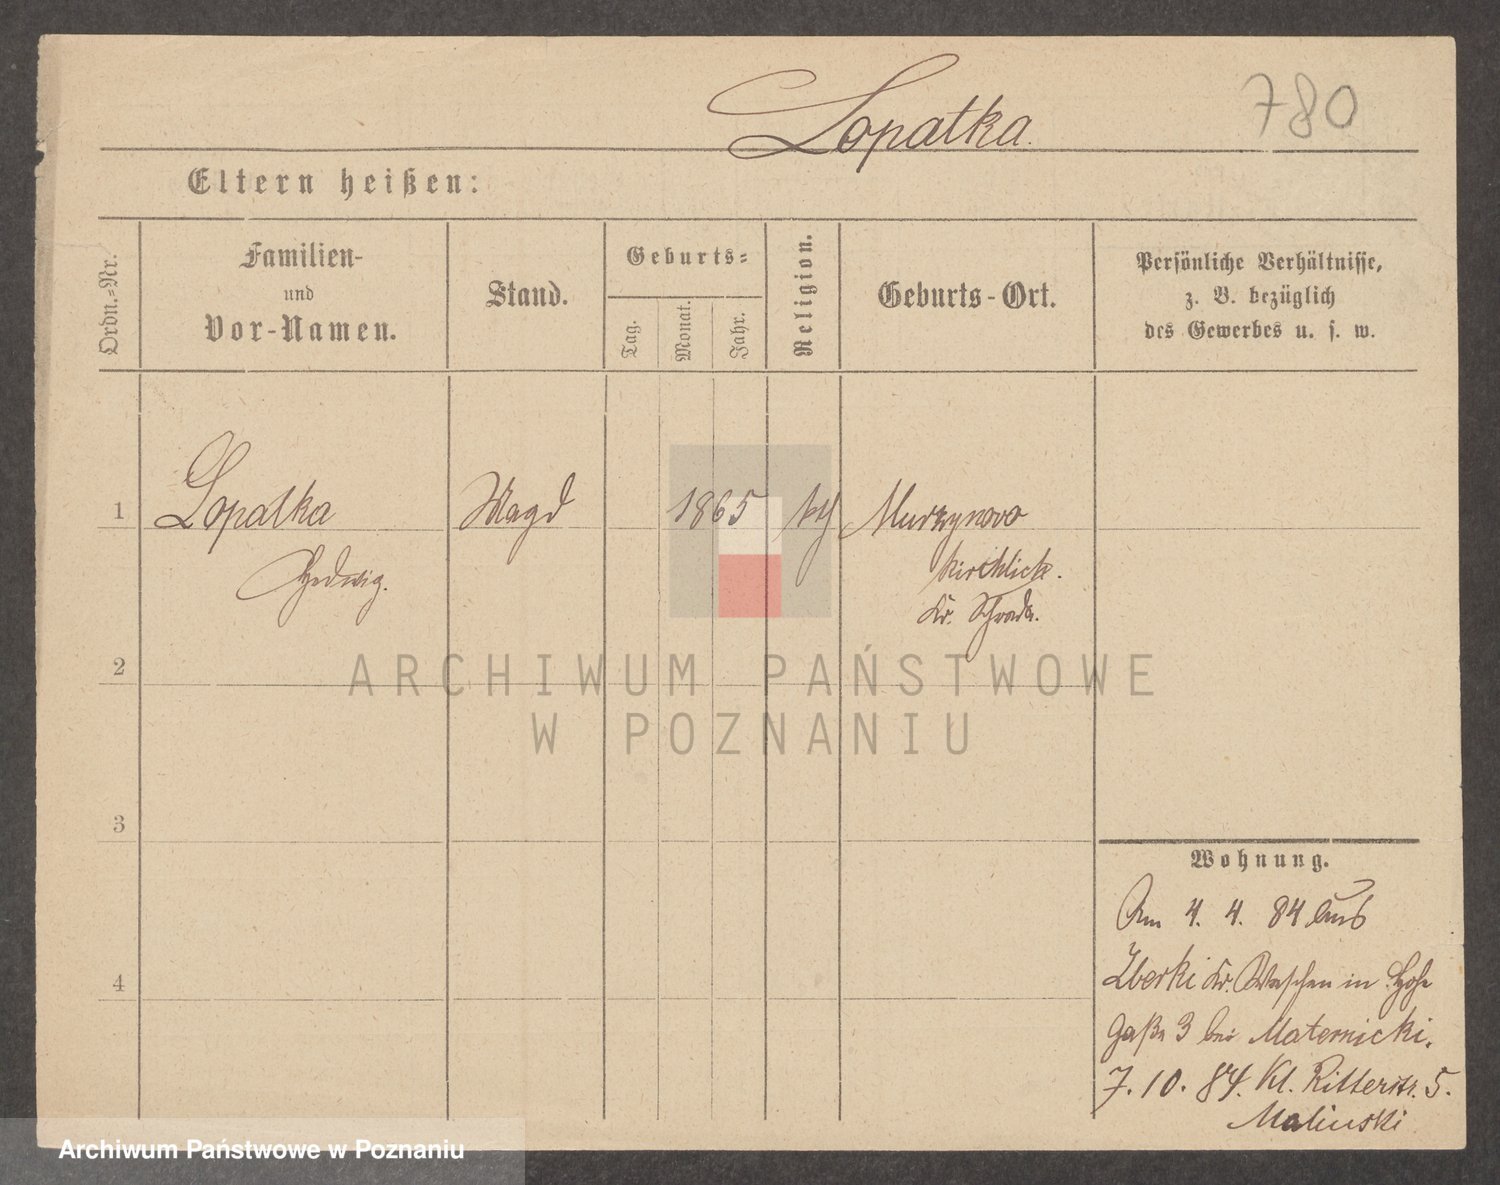 Lopatka.
780
Eltern heißen:
Ordn.-Nr.
Familien-
und
Vor-Namen.
Stand.
Geburts-
Tag.
Monat.
Jahr.
Religion.
Geburts-Ort.
Persönliche Verhältnisse,
z. B. bezüglich
des Gewerbes u. s. w.
1
Lopatka
Magd
1865
kth
Murzynovo
Hedwig.
kirchlich.
Kr. Schroda.
2
3
4
ARCHIWUM PAŃSTWOWE
W POZNANIU
Wohnung.
Am 4. 4. 84 aus
Zberki Kr. Wreschen in Hohe
Gaße 3 bei Maternicki.
7. 10. 84. Kl. Ritterstr. 5.
Malinski
Archiwum Państwowe w Poznaniu